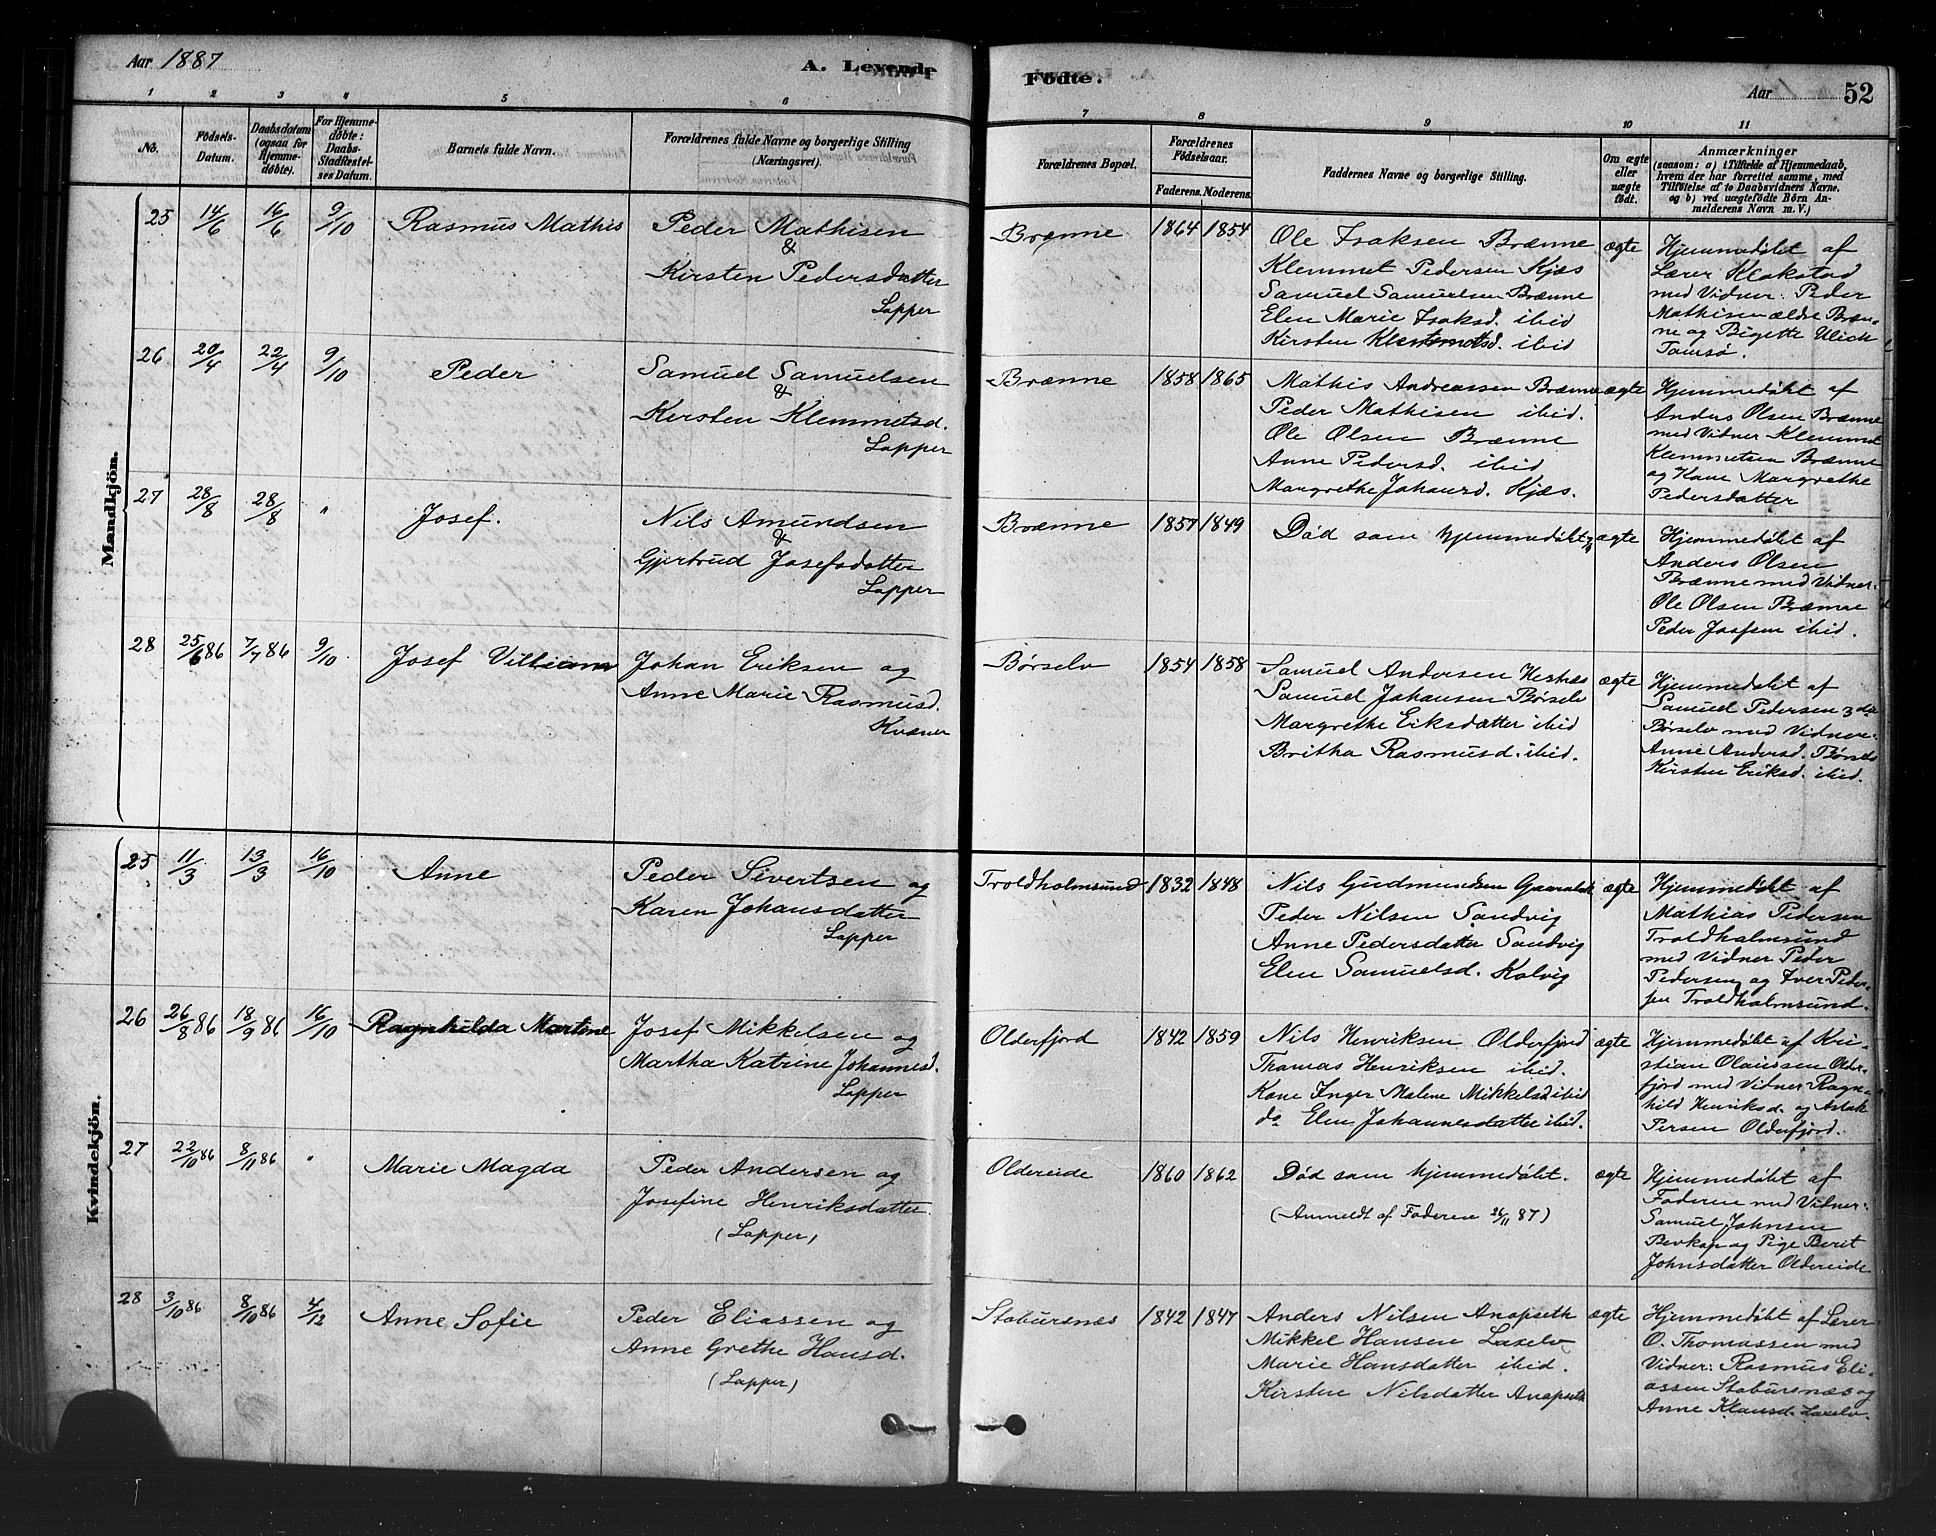 Aar 1887
A. Levende
Fødte.
Aar
52
1 2 3 4 5 6 7 8 9 10 11
No.
Fødsels-
Datum.
Daabsdatum
(ogsaa for
Hjemme-
døbte).
For Hjemme-
døbte:
Daabs-
Stadfæstel-
ses Datum.
Barnets fulde Navn.
Forældrenes fulde Navne og borgerlige Stilling
(Næringsvei).
Forældrenes Bopæl.
Forældrenes
Fødselsaar.
Faderens. Moderens.
Faddernes Navne og borgerlige Stilling.
Om ægte
eller
uægte
født.
Anmærkninger
(saasom: a) i Tilfælde af Hjemmedaab,
hvem der har forrettet samme, med
Tilføielse af to Daabsvidners Navne.
og b) ved uægtefødte Børn An-
melderens Navn m. V.)
Mandkjön.
25 14/6 16/6 9/10 Rasmus Mathis
Peder Mathisen
&
Kirsten Pedersdatter
Lapper
Brænne 1864 1854
Ole Isaksen Brænne
Klemmet Pedersen Kjæs
Samuel Samuelsen Brænne
Elen Marie Isaksd. ibid
Kirsten Klemmetsd. ibid
ægte
Hjemmedøbt af
Lærer Klakstad
med Vidner: Peder
Mathisen ældre Bræn-
ne og Bigette Ulich
Tamsø.
26 20/4 22/4 9/10 Peder
Samuel Samuelsen
&
Kirsten Klemmetsd.
Lapper
Brænne 1858 1865
Mathis Andreassen Brænne
Peder Mathisen ibid.
Ole Olsen Brænne
Anne Pedersd. ibid
Margrethe Johansd. Kjæs.
ægte
Hjemmedøbt af
Anders Olsen Brænne
med Vidner Klemmet
Klemmetsen Brænne
og Kane Margrethe
Pedersdatter
27 28/8 28/8 " Josef.
Nils Amundsen
&
Gjertrud Josefsdatter
Lapper
Brænne 1857 1849
Død som hjemmedøbt
ægte
Hjemmedøbt af
Anders Olsen
Brænne med Vidner:
Ole Olsen Brænne
Peder Josefsen ibid.
28 25/6 86 7/7 86 9/10 Josef Villiam
Johan Eriksen og
Anne Marie Rasmusd.
Kvæner
Børselv 1854 1858
Samuel Andersen Hestnes
Samuel Johansen Børselv
Margrethe Eriksdatter ibid
Britha Rasmusd. ibid.
ægte
Hjemmedøbt af
Samuel Pedersen 3die
Børselv med Vidnere
Anne Andersd. Børselv
Kirsten Eriksd. ibid.
Kvindekjön.
25 11/3 13/3 16/10 Anne
Peder Sivertsen og
Karen Johansdatter
Lapper
Troldholmsund 1832 1848
Nils Gudmundsen
Peder Nilsen Sandvig
Anne Pedersdatter Sandvig
Elen Samuelsd. Kolvig
ægte
Hjemmedøbt af
Mathias Pedersen
Troldholmsund
med Vidner Peder
Pedersen og Iver Peder-
sen Troldholmsund.
26 26/8 86 18/9 86 16/10 Ragnhilda Martine
Josef Mikkelsen og
Martha Katrine Johannesd.
Lapper
Olderfjord 1842 1859
Nils Henriksen Olderfjord
Thomas Henriksen ibid.
Kone Inger Malene Mikkelsd ibid
do Elen Johannesdatter ibid.
ægte
Hjemmedøbt af Kri-
stian Olaussen Older-
fjord med Vidner Ragn-
hild Henriksd. og Aslak
Persen Olderfjord.
27 22/10 86 8/11 86 " Marie Magda
Peder Andersen og
Josefine Henriksdatter.
(Lapper)
Oldereide 1860 1862
Død som hjemmedøbt.
(Anmeldt af Faderen 26/11 87)
ægte
Hjemmedøbt af
Faderen med Vidner:
Samuel Johnsen
Bevkop og Pige Berit
Johnsdatter Oldereide
28 3/10 86 8/10 86 4/12 Anne Sofie
Peder Eliassen og
Anne Grethe Hansd.
(Lapper)
Stabursnæs 1842 1847
Anders Nilsen Anopseth
Mikkel Hansen Laxelv
Marie Hansdatter ibid.
Kirsten Nilsdatter Anopseth
ægte
Hjemmedøbt af Lærer
O. Thomassen med
Vidner: Rasmus Eli-
assen Stabursnæs og
Anne Klausd. Laxelv.